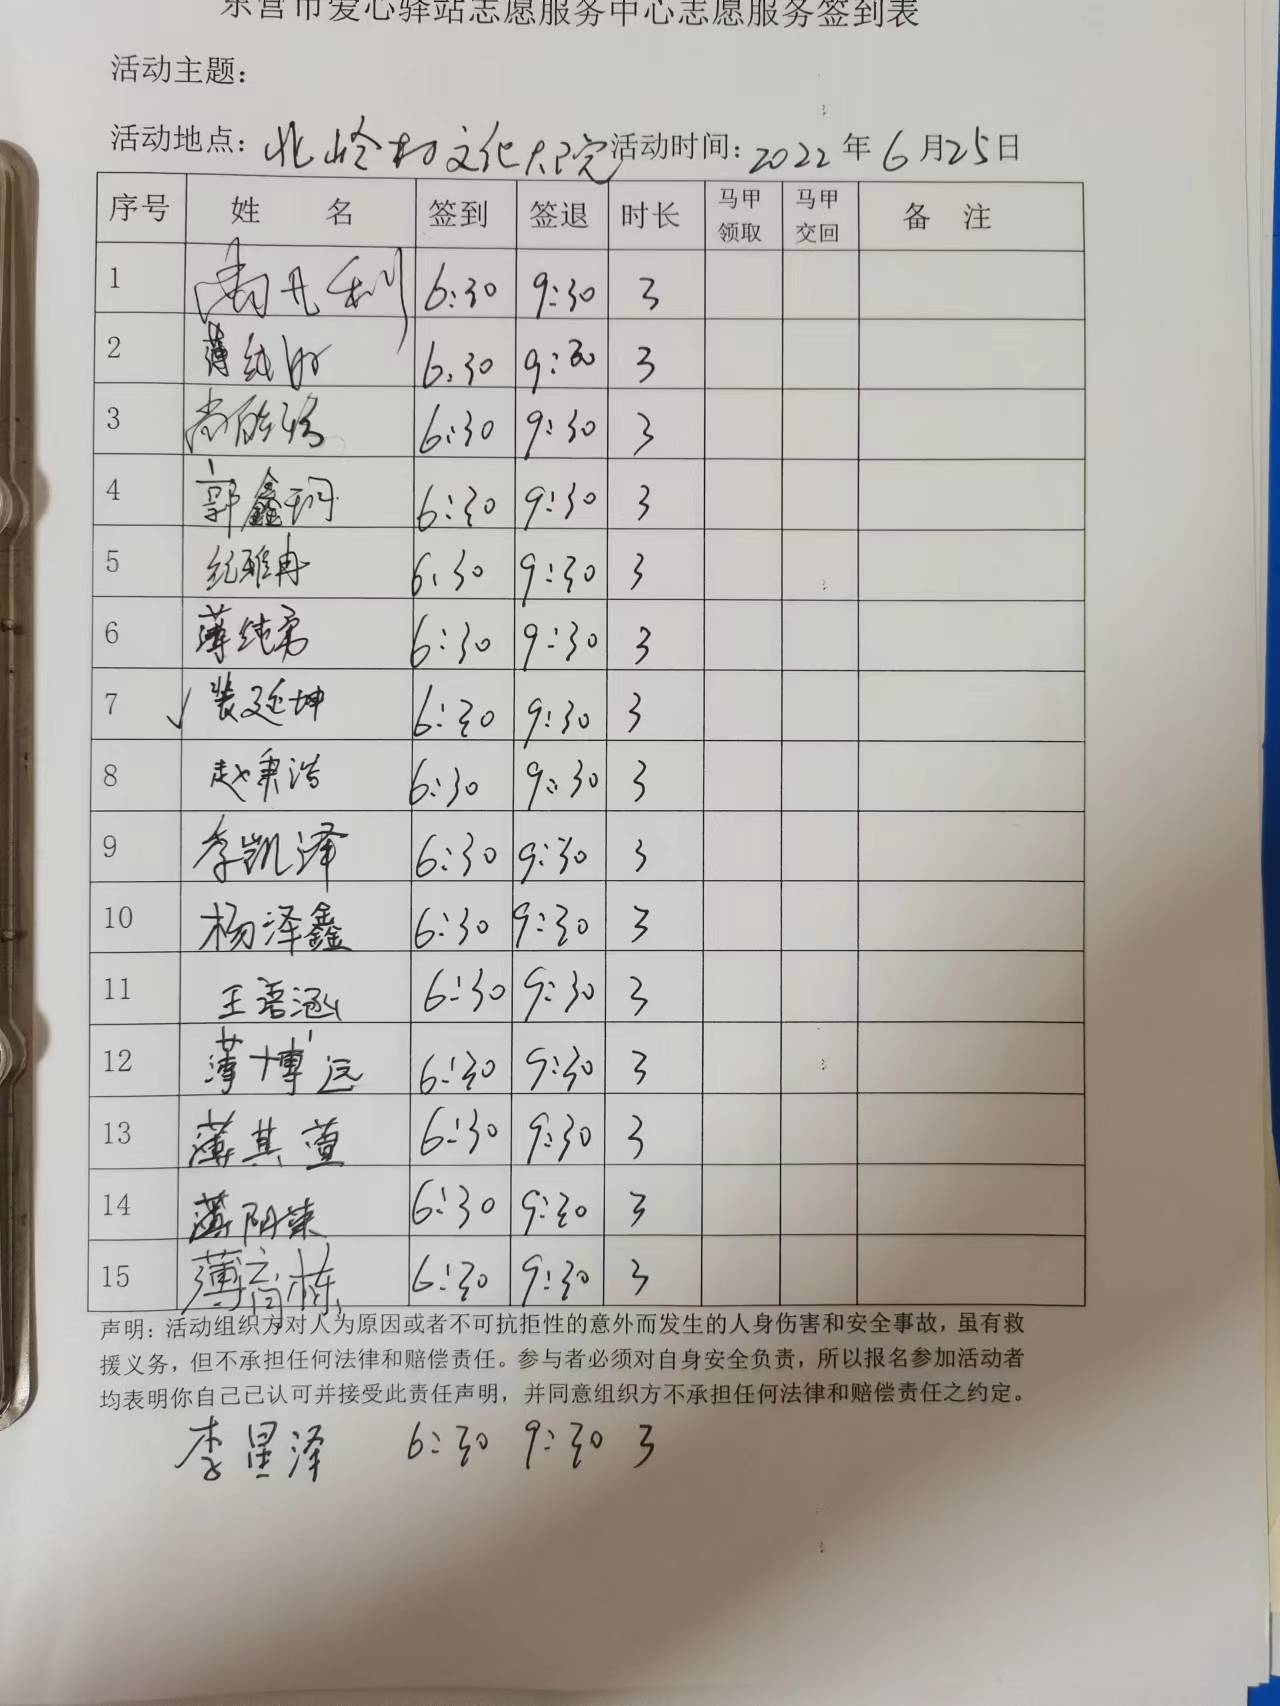 东营市爱心驿站志愿服务中心志愿服务签到表
活动主题：
活动地点：北岭村文化大院 活动时间：2022年6月25日
序号 姓 名 签到 签退 时长 马甲领取 马甲交回 备 注
1 6:30 9:30 3
2 薄纯 6:30 9:30 3
3 尚 6:30 9:30 3
4 郭鑫珂 6:30 9:30 3
5 纪雅冉 6:30 9:30 3
6 薄纯勇 6:30 9:30 3
7 √ 裴延坤 6:30 9:30 3
8 赵秉浩 6:30 9:30 3
9 李凯泽 6:30 9:30 3
10 杨泽鑫 6:30 9:30 3
11 王语涵 6:30 9:30 3
12 薄博远 6:30 9:30 3
13 薄其萱 6:30 9:30 3
14 薄阳 6:30 9:30 3
15 薄高栋 6:30 9:30 3
声明：活动组织方对人为原因或者不可抗拒性的意外而发生的人身伤害和安全事故，虽有救
援义务，但不承担任何法律和赔偿责任。参与者必须对自身安全负责，所以报名参加活动者
均表明你自己己认可并接受此责任声明，并同意组织方不承担任何法律和赔偿责任之约定。
李星泽 6:30 9:30 3